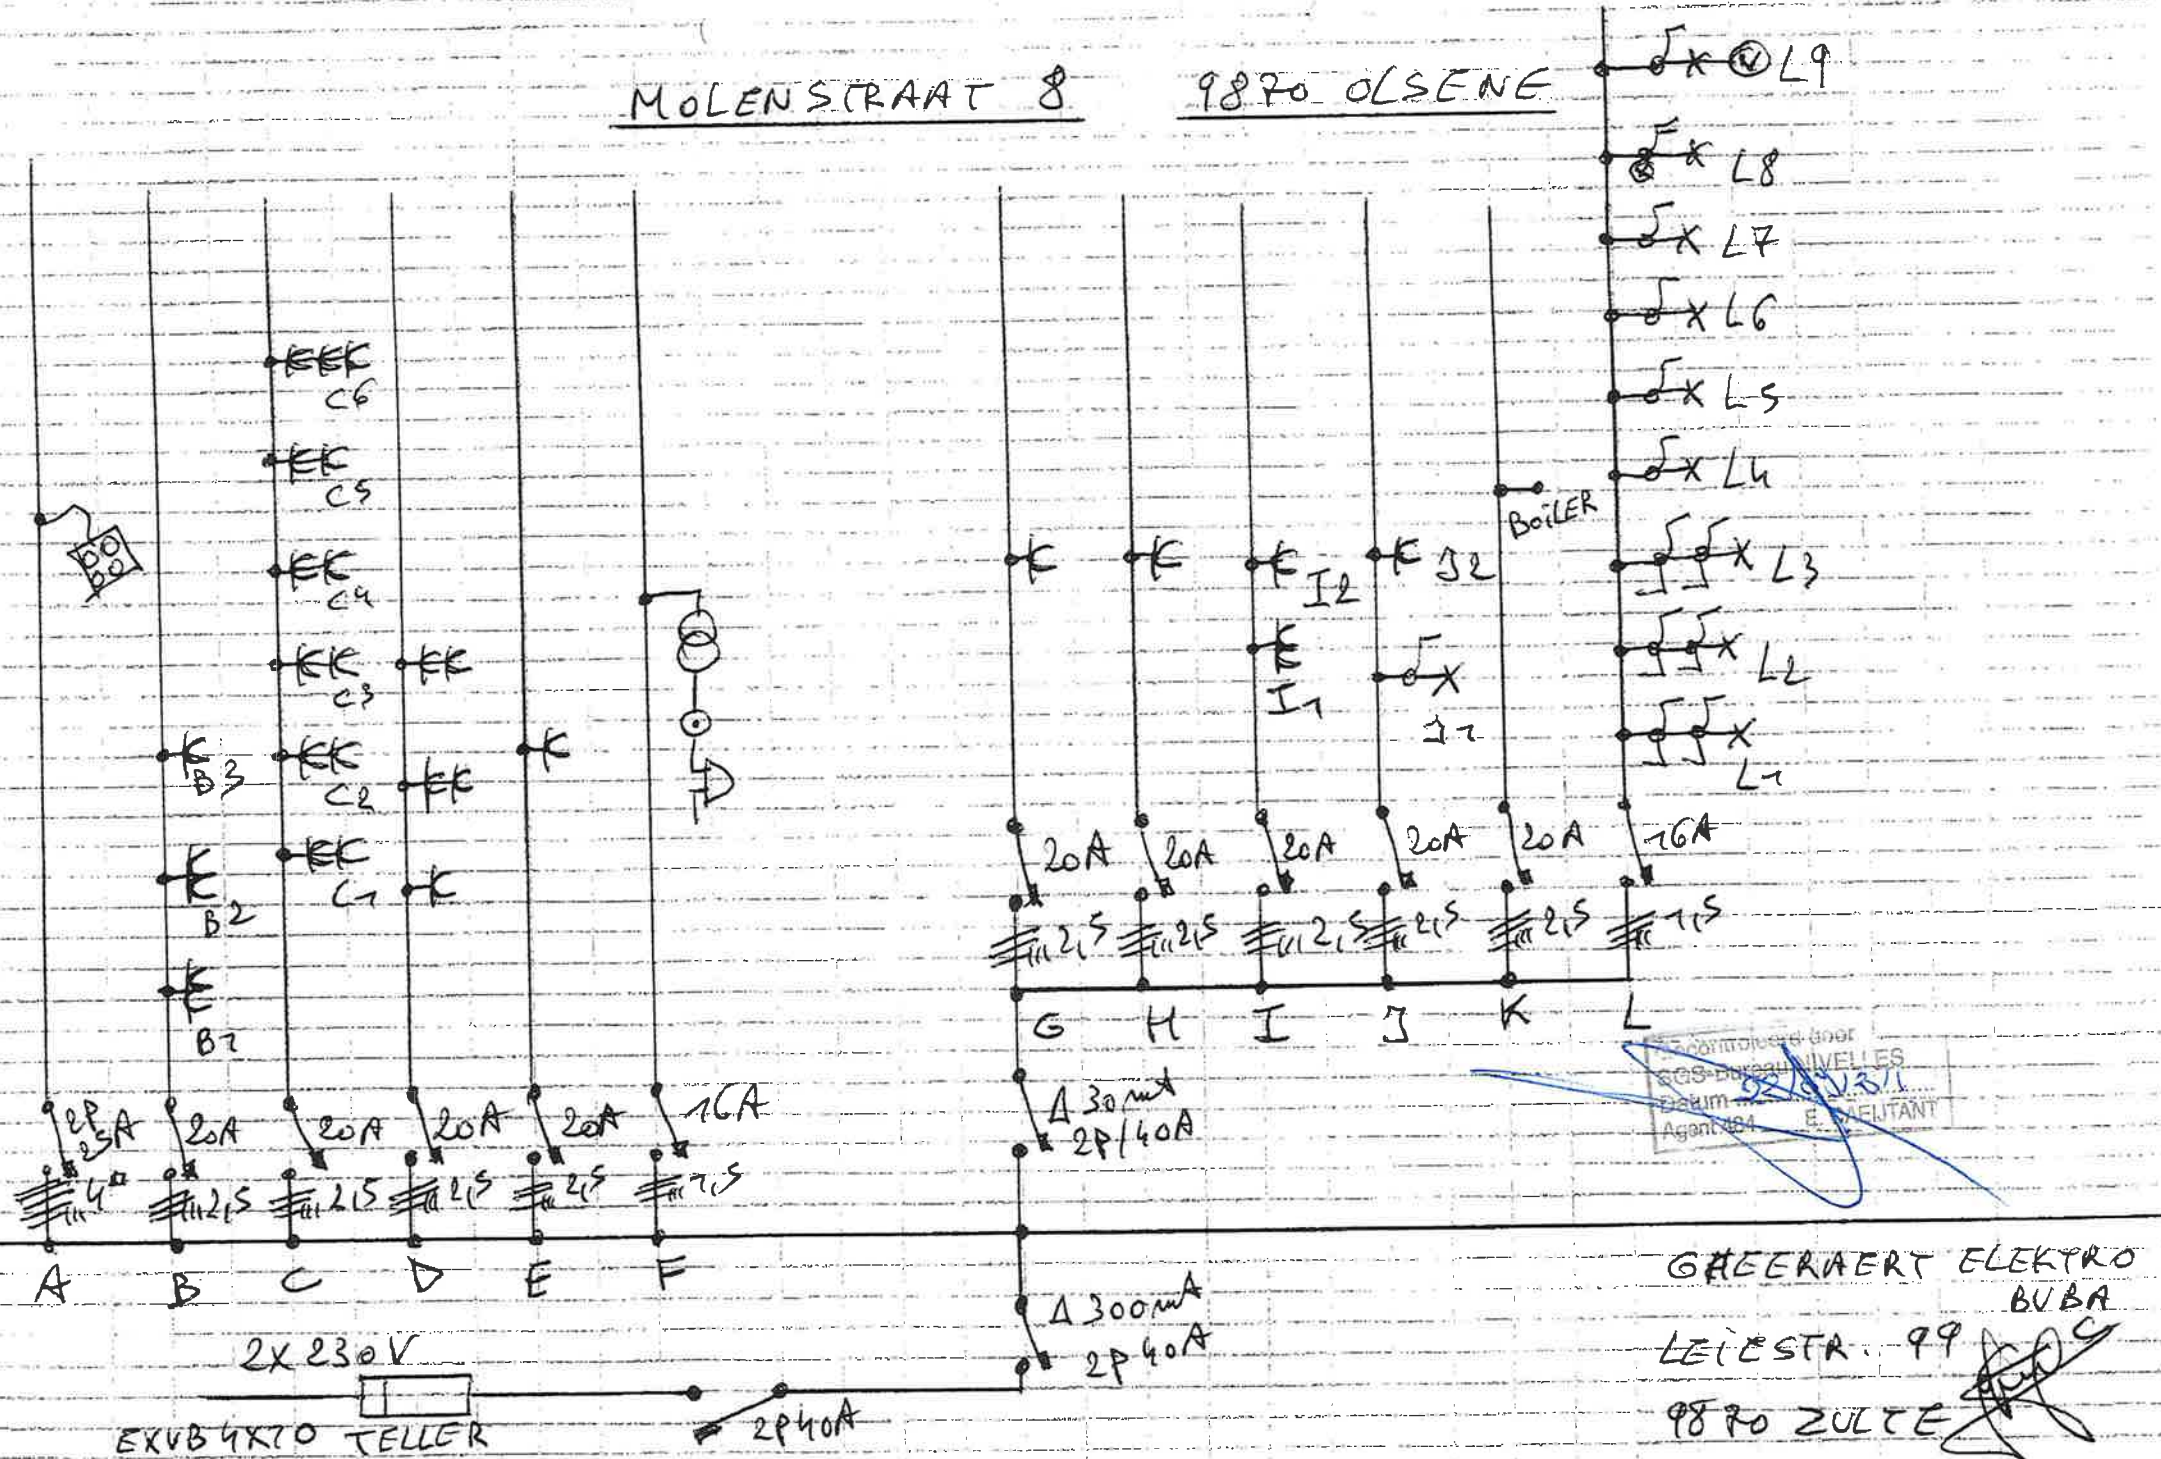 MOLENSTRAAT 8 9870 OLSENE
L9
L8
L7
L6
L5
L4
L3
L2
L1
C6
C5
C4
C3
C2
C1
B3
B2
B1
I2
I1
J2
J1
BOILER
20A 20A 20A 20A 20A 16A
2,5 2,5 2,5 2,5 2,5 1,5
G H I J K L
Δ 30 mA
2P/40A
2P
25A 20A 20A 20A 20A 16A
4□ 2,5 2,5 2,5 2,5 1,5
A B C D E F
Δ 300 mA
2P 40A
2X230V
EXVB 4X10 TELLER
2P40A
Gecontroleerd door
SGS-Bureau NIVELLES
Datum
Agent 484 E.
GHEERAERT ELEKTRO
BVBA
LEIESTR. 99
9870 ZULTE